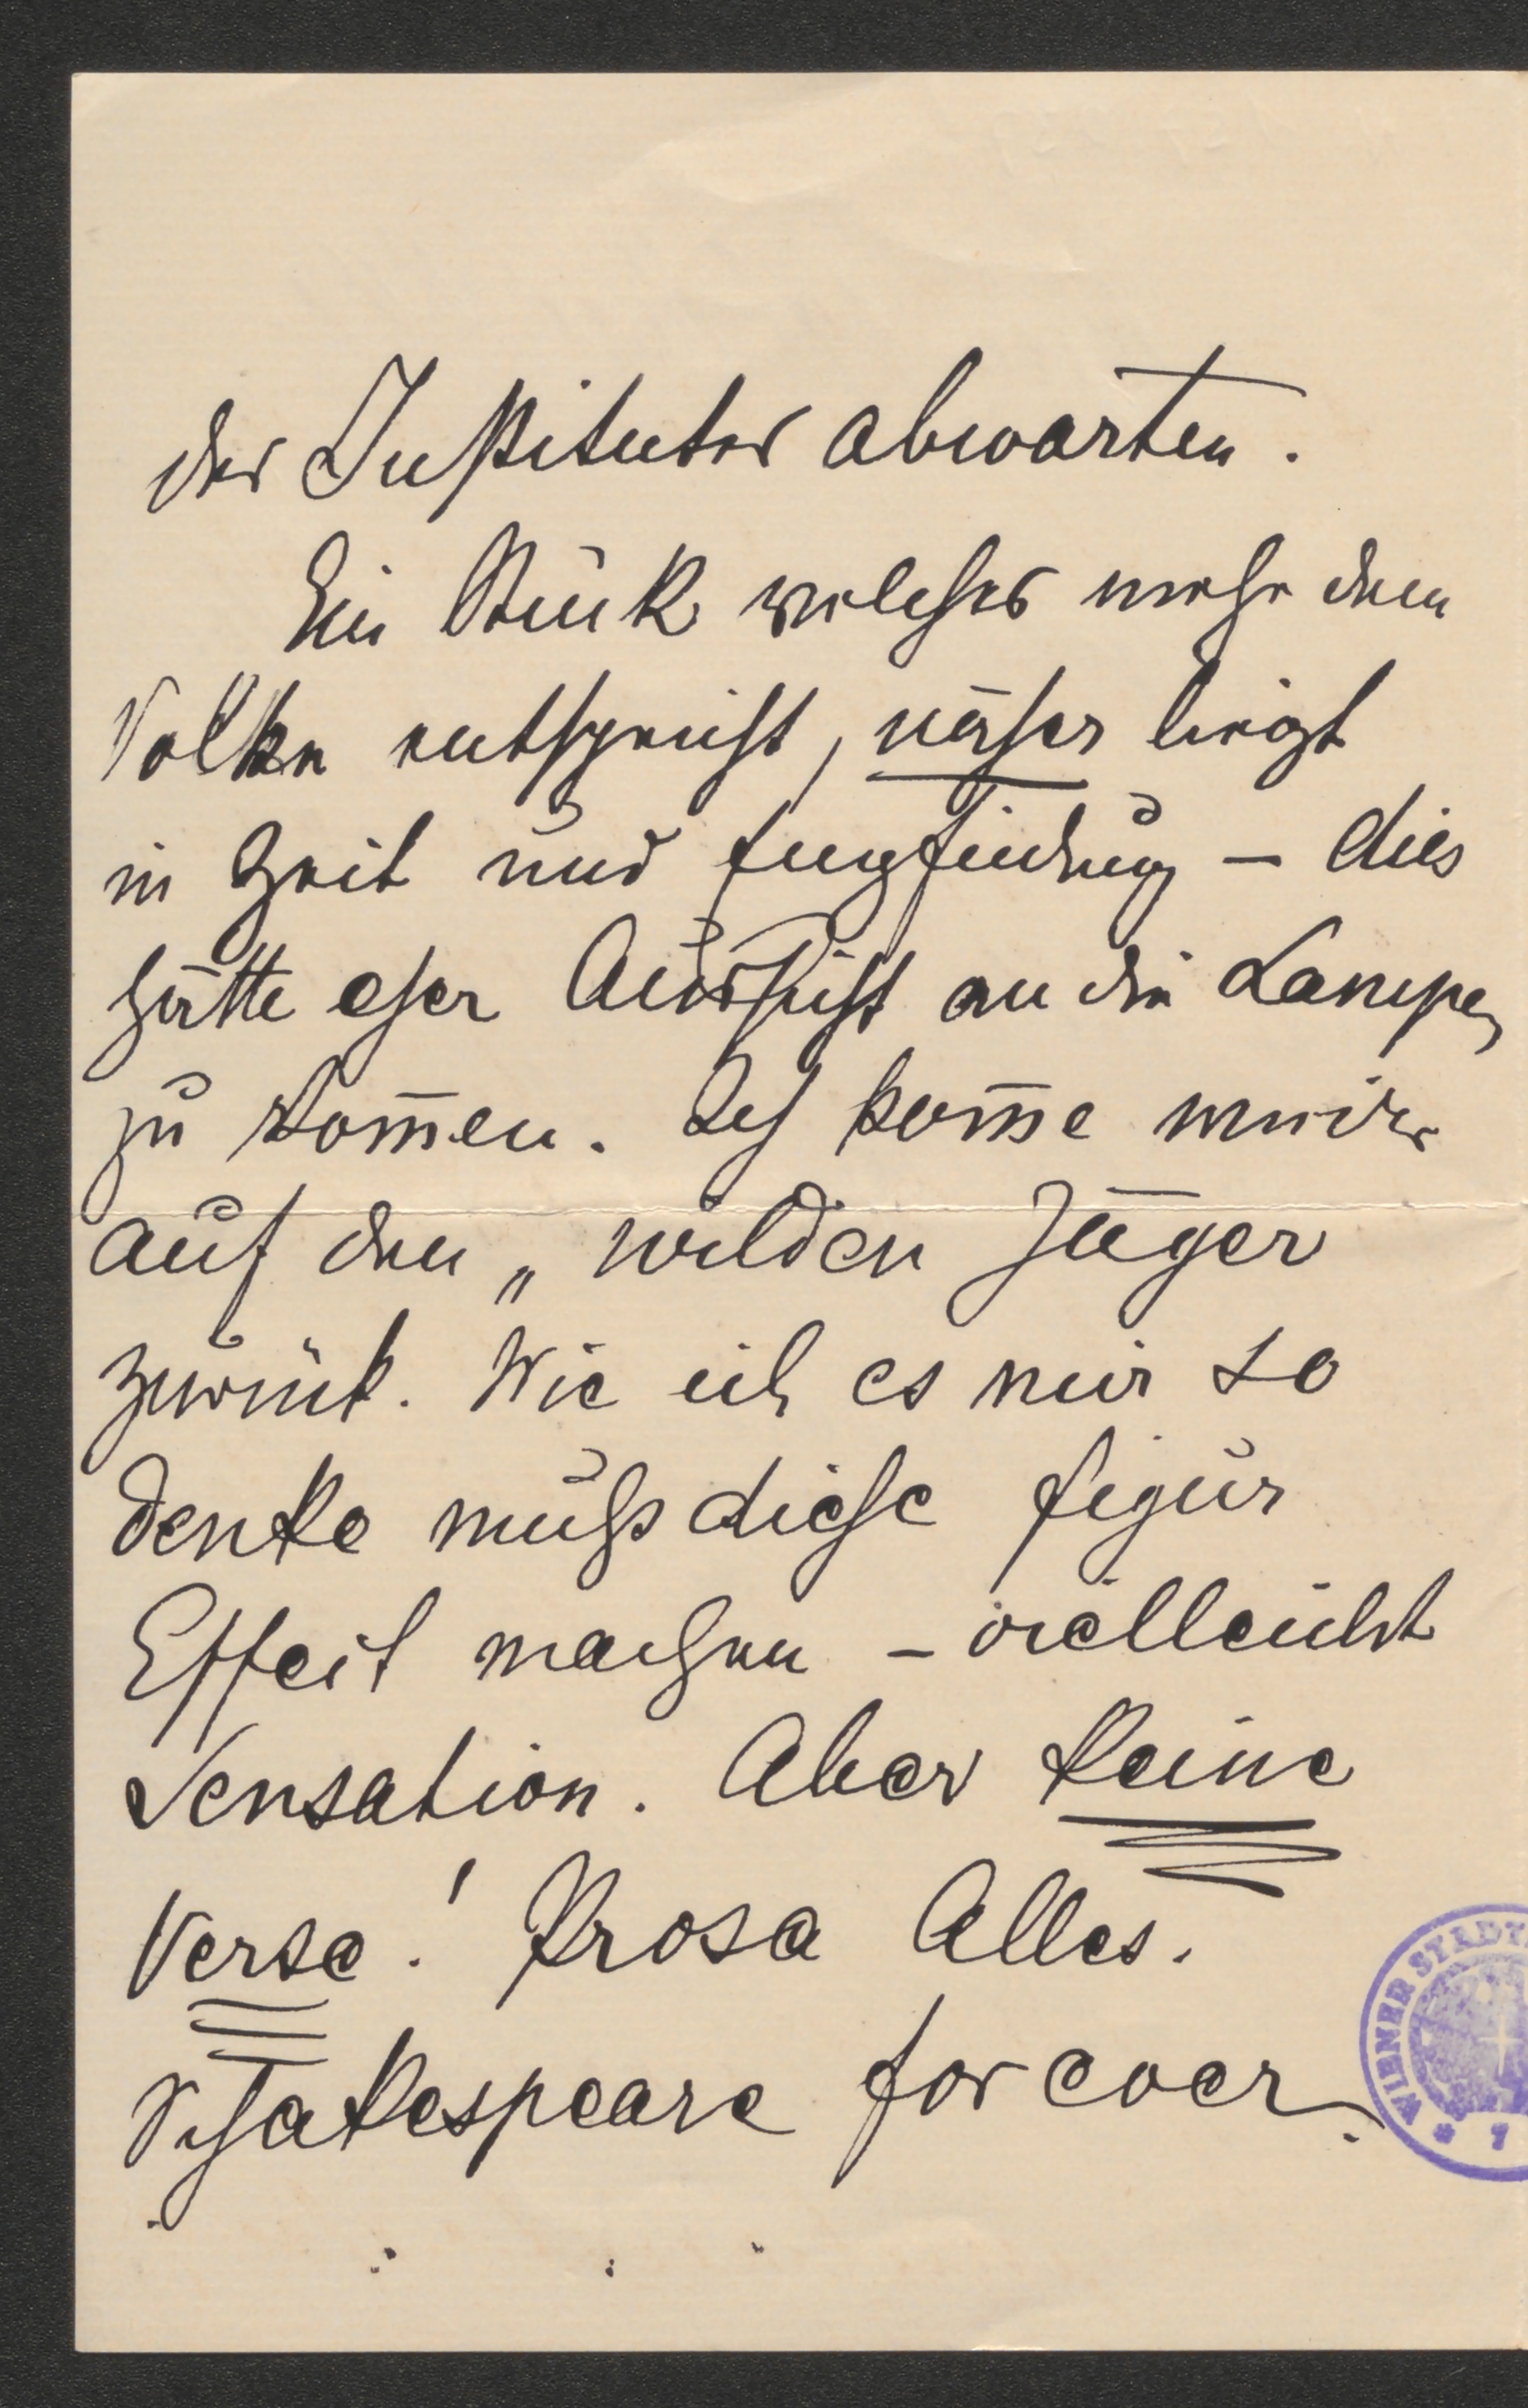 des Institutes abwarten.
Ein Stück welches mehr dem
Volke entspricht, näher liegt
in Zeit und Empfindung – dies
hätte eher Aussicht an die Lampen
zu kom̄en. Ich kom̄e im̄er
auf den „wilden Jäger
zurück. Wie ich es mir so
denke muß diese Figur
Effect machen – vielleicht
Sensation. Aber keine
Verse! Prosa Alles.
Schakespeare for ever.
WIENER STADT